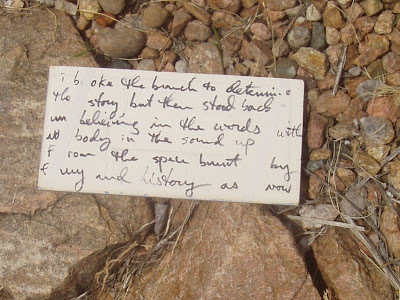 i broke the branch to determine
the story but then stood back
un believing in the words with
no body in the sound up
f rom the space burnt by
f ury and history as now